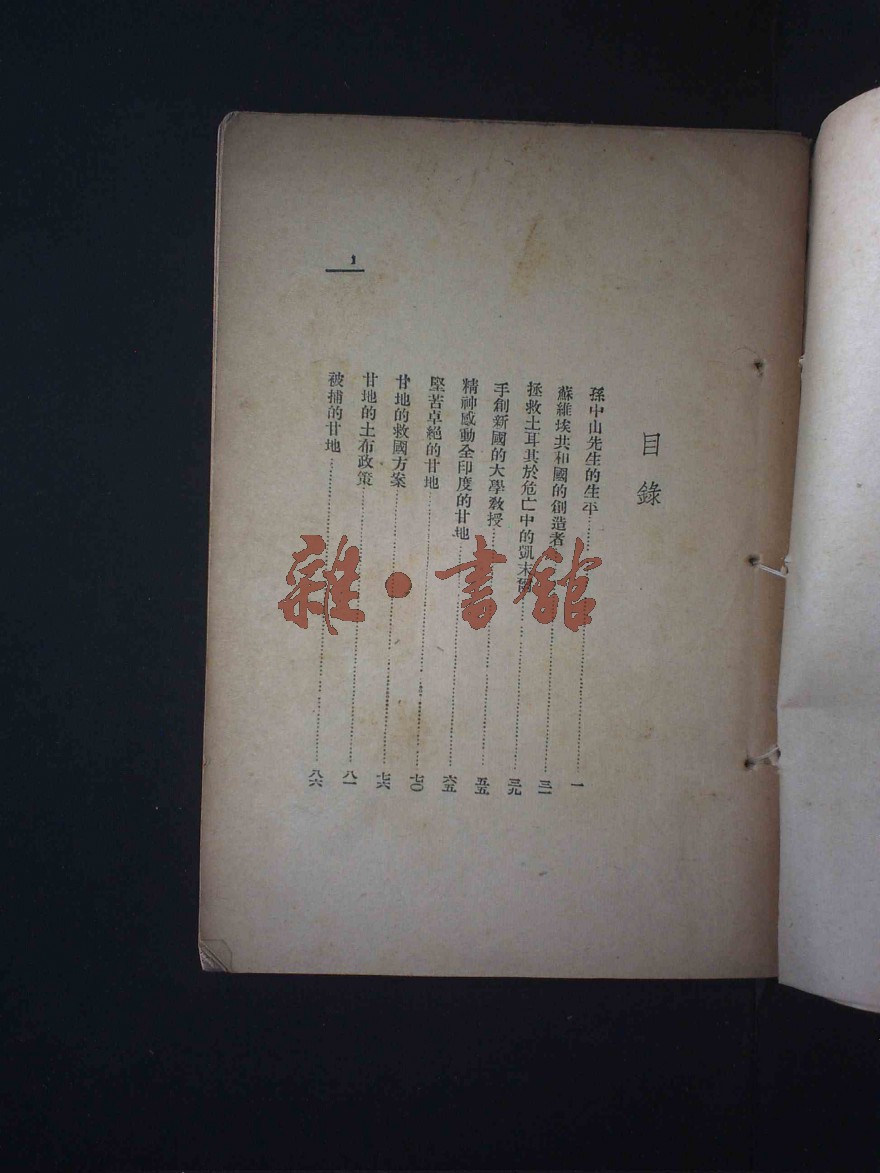 目錄
孫中山先生的生平……一
蘇維埃共和國的創造者……三一
拯救土耳其於危亡中的凱末爾……三九
手創新國的大學教授……五五
精神感動全印度的甘地……六五
堅苦卓絕的甘地……七〇
甘地的救國方案……七六
甘地的土布政策……八一
被捕的甘地……八六
雜·書館